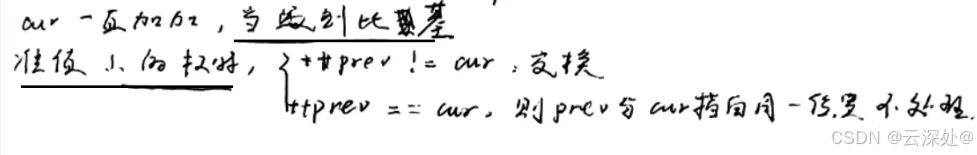 cur 一直加加，当遇到比基
准值小的数时，{ ++prev != cur，交换
++prev == cur，则 prev 与 cur 指向同一位置 不处理.
CSDN @云深处@